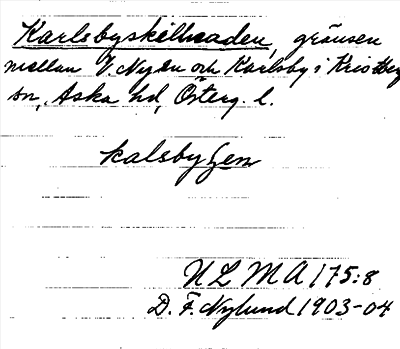 Karlsbyskillnaden, gränsen
mellan V. Ny sn och Karlsby i Kristberg
sn, Aska hd, Österg. l.
kalsby
ULMA 175:8
D. F. Nylund 1903-04